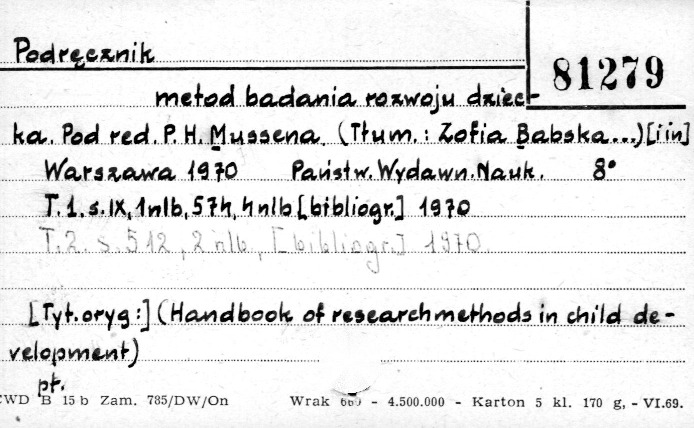 Podręcznik
81279
metod badania rozwoju dziec-
ka. Pod red. P. H. Mussena. (Tłum.: Zofia Babska...) [i in]
Warszawa 1970 Państw. Wydawn. Nauk. 8°
T. 1. s. IX, 1 nlb, 574, 4 nlb [bibliogr.] 1970
T. 2. s. 512, 2 nlb, [bibliogr.] 1970.
[Tyt. oryg:] (Handbook of research methods in child de-
velopment)
pt.
CWD B 15 b Zam. 785/DW/On Wrak - 4.500.000 - Karton 5 kl. 170 g, - VI.69.